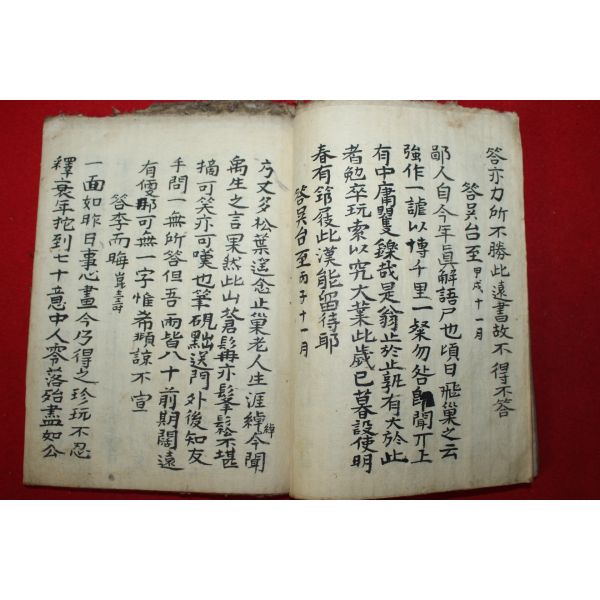 答亦力所不勝此遠書故不得不答
答吳台至 甲戌十一月
鄙人自今年眞解語尸也頃日飛巢芝云
強作一謔以博千里一粲勿咎卽聞丌上
有中庸矍鑠哉是翁止於止孰有大於此
者勉卒玩索以究大業此歲已暮設使明
春有節屐此漢能留待耶
答吳台至 丙子十一月
方丈多松葉遙念止巢老人生涯綽今聞
禹生之言果然此山蒼髥亦髼鬆不堪
摘可笑亦可嘆也筆硯點送阿外後知友
手問一無所答但吾兩皆八十前期闊遠
有便那可無一字惟希頫諒不宣
答李而晦
一面如昨日事心畫今乃得之珍玩不忍
釋衰年抡到七十意中人零落殆盡如公